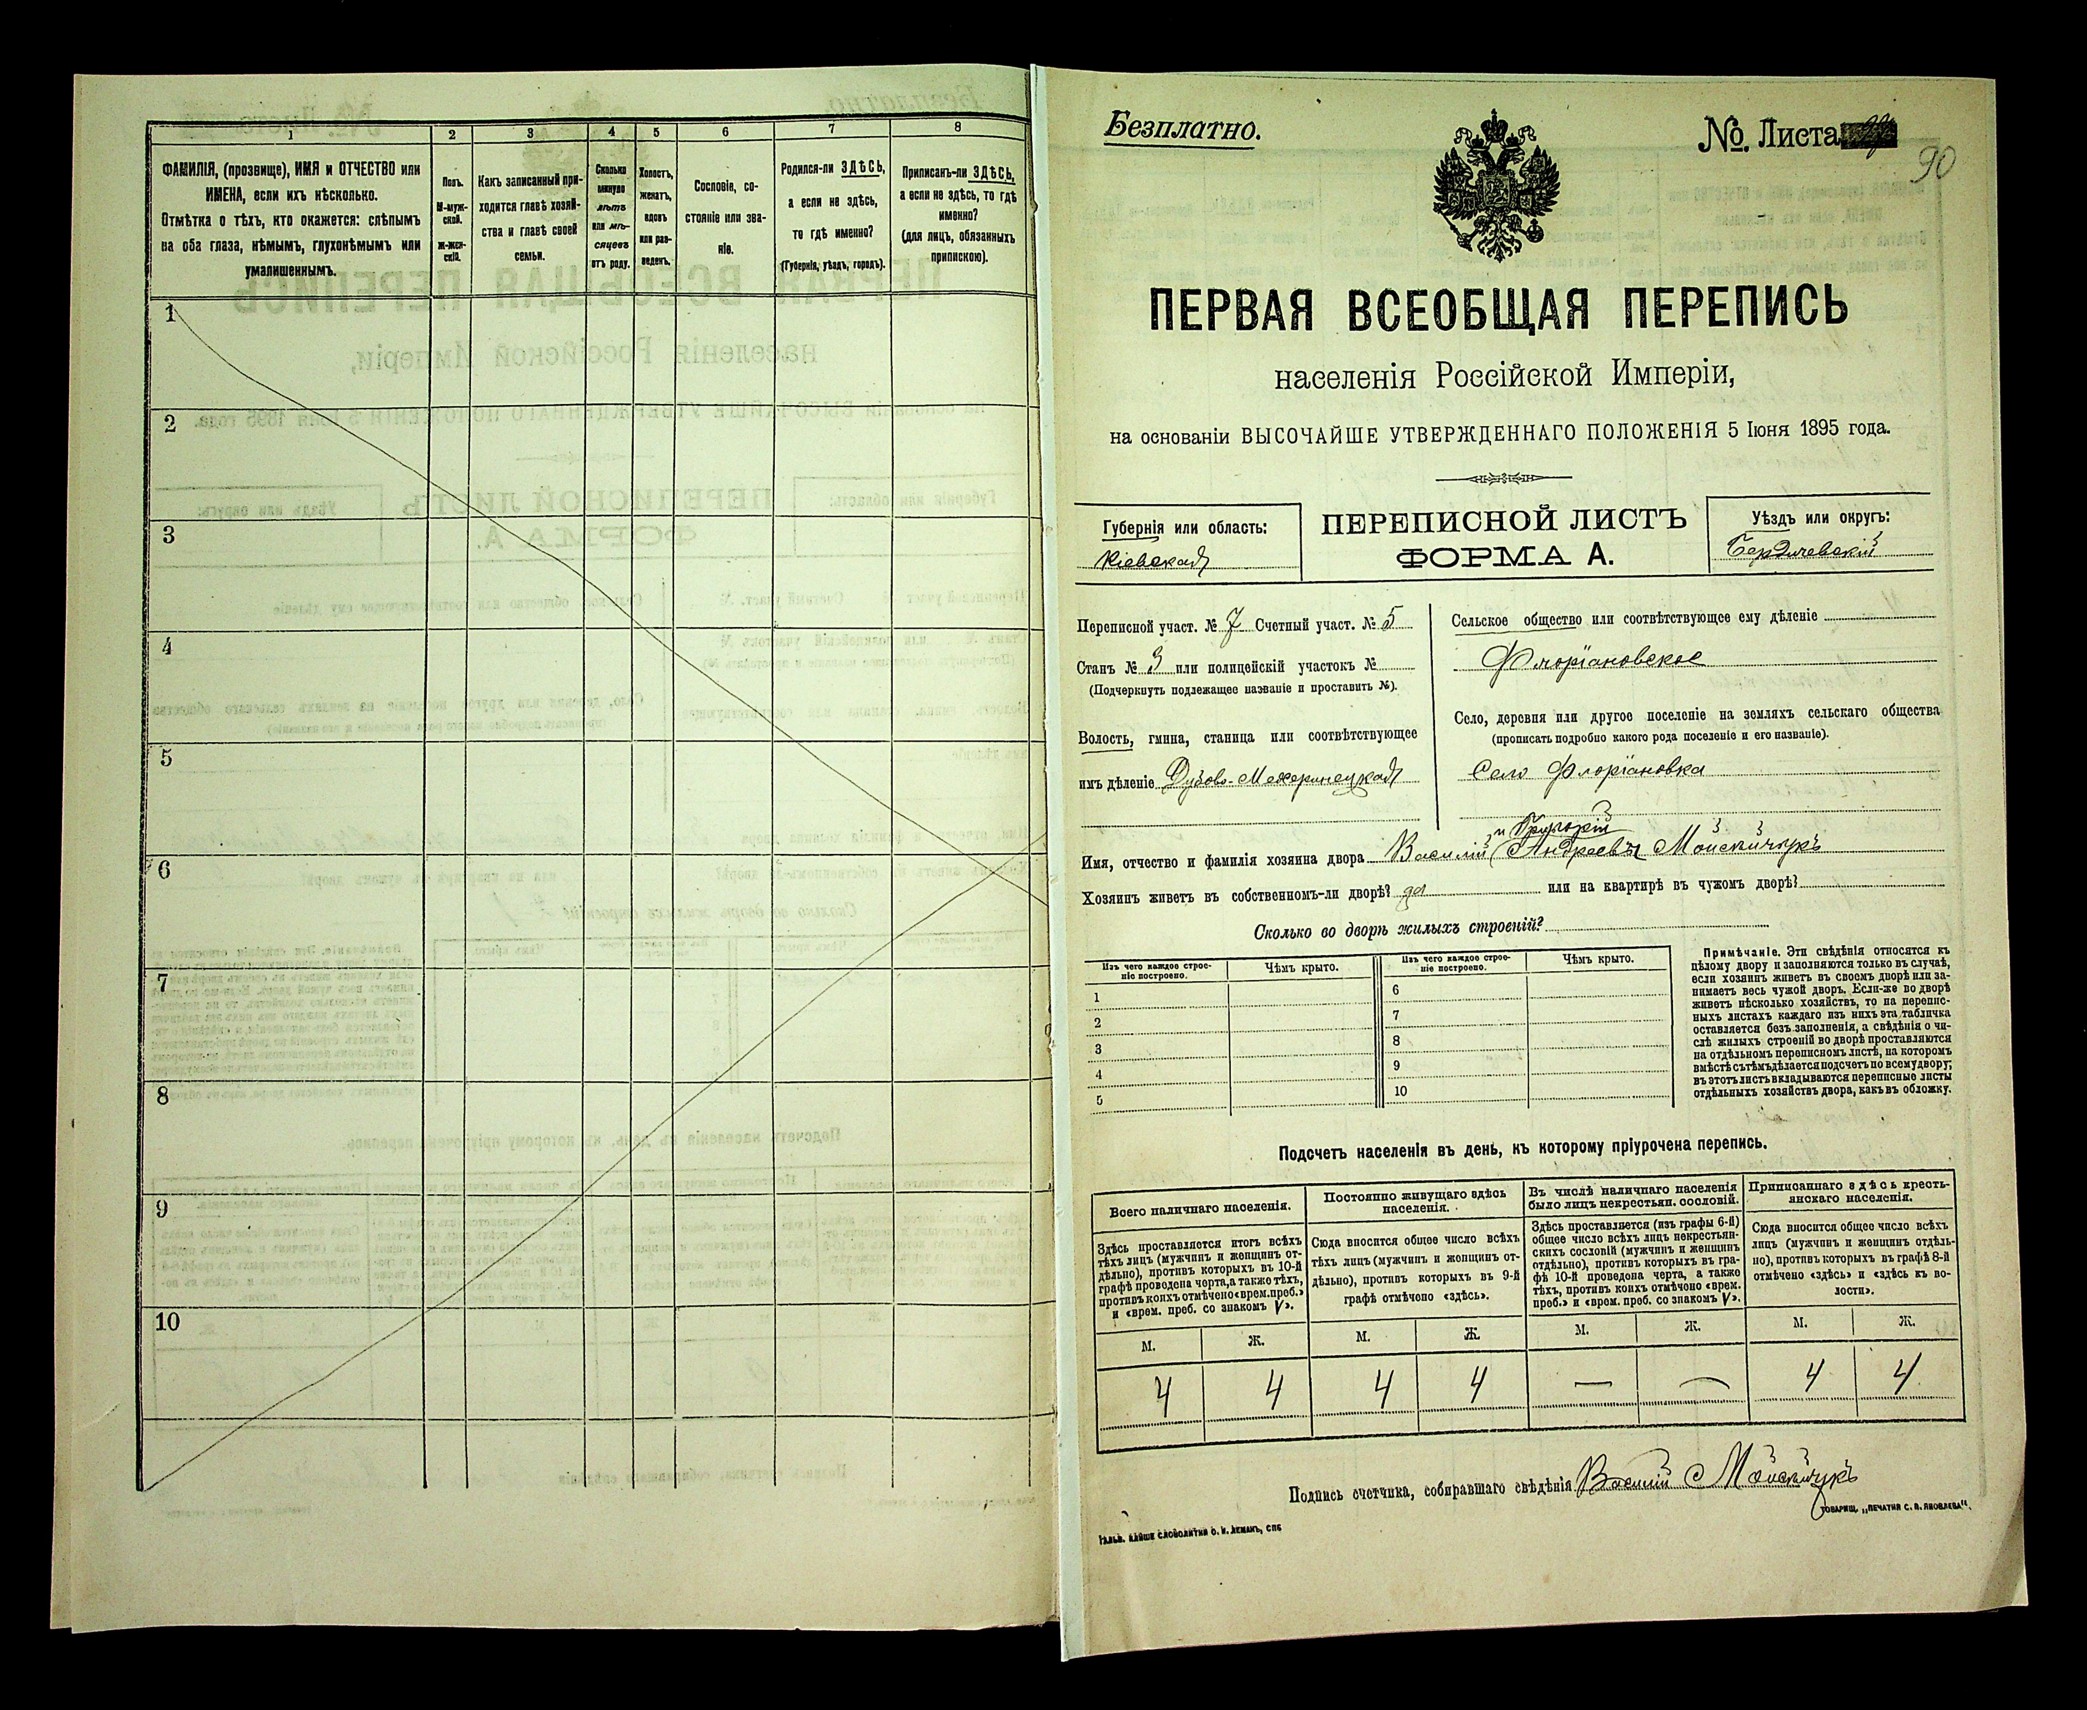 1 2 3 4 5 6 7 8
ФАМИЛІЯ, (прозвище), ИМЯ и ОТЧЕСТВО или
ИМЕНА, если ихъ нѣсколько.
Отмѣтка о тѣхъ, кто окажется: слѣпымъ
на оба глаза, нѣмымъ, глухонѣмымъ или
умалишеннымъ.
Полъ.
М-муж-
ской.
ж-жен-
скій.
Какъ записанный при-
ходится главѣ хозяй-
ства и главѣ своей
семьи.
Сколько
минуло
лѣтъ
или мѣ-
сяцевъ
отъ роду.
Холостъ,
женатъ,
вдовъ
или раз-
веденъ.
Сословіе, со-
стояніе или зва-
ніе.
Родился-ли ЗДѢСЬ,
а если не здѣсь,
то гдѣ именно?
(Губернія, уѣздъ, городъ).
Приписанъ-ли ЗДѢСЬ,
а если не здѣсь, то гдѣ
именно?
(для лицъ, обязанныхъ
припискою).
1
2
3
4
5
6
7
8
9
10
Безплатно.
№. Листа
90
ПЕРВАЯ ВСЕОБЩАЯ ПЕРЕПИСЬ
населенія Россійской Имперіи,
на основаніи ВЫСОЧАЙШЕ УТВЕРЖДЕННАГО ПОЛОЖЕНІЯ 5 Іюня 1895 года.
Губернія или область:
Кіевская
ПЕРЕПИСНОЙ ЛИСТЪ
ФОРМА А.
Уѣздъ или округъ:
Бердичевскій
Переписной участ. № 7 Счетный участ. № 5
Станъ № 3 или полицейскій участокъ №
(Подчеркнуть подлежащее названіе и проставить №).
Волость, гмина, станица или соотвѣтствующее
имъ дѣленіе Дубово-Мехеринецкая
Сельское общество или соотвѣтствующее ему дѣленіе
Флоріановское
Село, деревня или другое поселеніе на земляхъ сельскаго общества
(прописать подробно какого рода поселеніе и его названіе).
Село Флоріановка
и Григорій
Имя, отчество и фамилія хозяина двора Василій Андреевы Мойсейчукъ
Хозяинъ живетъ въ собственномъ-ли дворѣ? да или на квартирѣ въ чужомъ дворѣ?
Сколько во дворѣ жилыхъ строеній?
Изъ чего каждое строе-
ніе построено.
Чѣмъ крыто.
Изъ чего каждое строе-
ніе построено.
Чѣмъ крыто.
1 6
2 7
3 8
4 9
5 10
Примѣчаніе. Эти свѣдѣнія относятся къ
цѣлому двору и заполняются только въ случаѣ,
если хозяинъ живетъ въ своемъ дворѣ или за-
нимаетъ весь чужой дворъ. Если-же во дворѣ
живетъ нѣсколько хозяйствъ, то на перепис-
ныхъ листахъ каждаго изъ нихъ эта табличка
оставляется безъ заполненія, а свѣдѣнія о чи-
слѣ жилыхъ строеній во дворѣ проставляются
на отдѣльномъ переписномъ листѣ, на которомъ
вмѣстѣ съ тѣмъ дѣлается подсчетъ по всему двору;
въ этотъ листъ вкладываются переписные листы
отдѣльныхъ хозяйствъ двора, какъ въ обложку.
Подсчетъ населенія въ день, къ которому пріурочена перепись.
Всего наличнаго населенія.
Здѣсь проставляется итогъ всѣхъ
тѣхъ лицъ (мужчинъ и женщинъ от-
дѣльно), противъ которыхъ въ 10-й
графѣ проведена черта, а также тѣхъ,
противъ коихъ отмѣчено «врем. преб.»
и «врем. преб. со знакомъ V».
Постоянно живущаго здѣсь
населенія.
Сюда вносится общее число всѣхъ
тѣхъ лицъ (мужчинъ и женщинъ от-
дѣльно), противъ которыхъ въ 9-й
графѣ отмѣчено «здѣсь».
Въ числѣ наличнаго населенія
было лицъ некрестьян. сословій.
Здѣсь проставляется (изъ графы 6-й)
общее число всѣхъ лицъ некрестьян-
скихъ сословій (мужчинъ и женщинъ
отдѣльно), противъ которыхъ въ гра-
фѣ 10-й проведена черта, а также
тѣхъ, противъ коихъ отмѣчено «врем.
преб.» и «врем. преб. со знакомъ V».
Приписаннаго здѣсь кресть-
янскаго населенія.
Сюда вносится общее число всѣхъ
лицъ (мужчинъ и женщинъ отдѣль-
но), противъ которыхъ въ графѣ 8-й
отмѣчено «здѣсь» и «здѣсь къ во-
лости».
М. Ж. М. Ж. М. Ж. М. Ж.
4 4 4 4 — — 4 4
Подпись счетчика, собиравшаго свѣдѣнія Василій Мойсейчукъ
ТОВАРИЩ. „ПЕЧАТНЯ С. П. ЯКОВЛЕВА“.
СЛОВОЛИТНИ О. И. ЛЕМАНЪ, СПБ